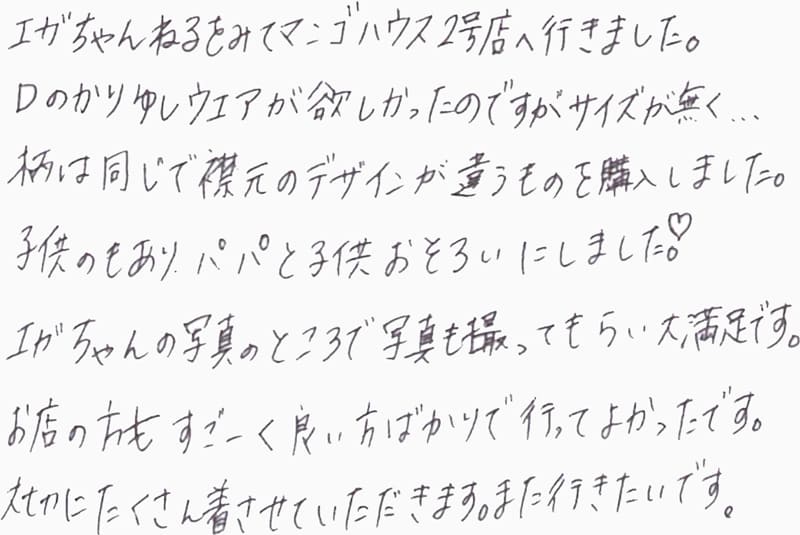 エガちゃんねるをみてマンゴハウス2号店へ行きました。
Dのかりゆしウエアが欲しかったのですがサイズが無く...
柄は同じで襟元のデザインが違うものを購入しました。
子供のもあり、パパと子供おそろいにしました。♡
エガちゃんの写真のところで写真も撮ってもらい大満足です。
お店の方もすごーく良い方ばかりで行ってよかったです。
大切にたくさん着させていただきます。また行きたいです。